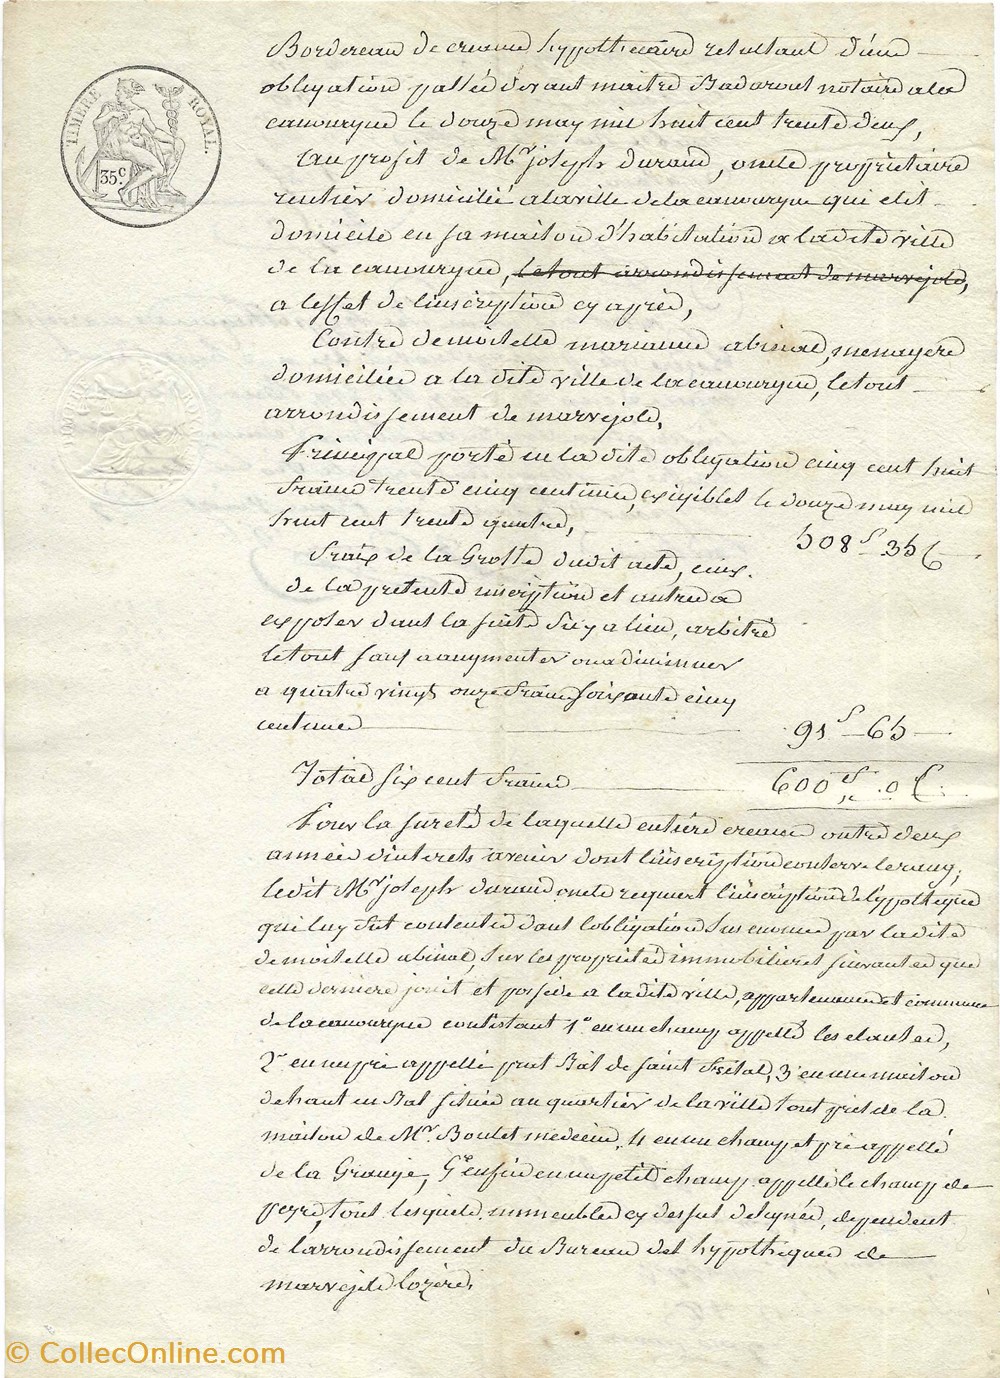 TIMBRE ROYAL.
35c.
Bordereau de creance hypothecaire resultant d'une
obligation passée devant maitre Badaroux notaire a la
canourgue le douze may mil huit cent trente deux,
Au profit de Mr joseph durand, oncle proprietaire
rentier domicilié a la ville de la canourgue qui elit
domicile en sa maison d'habitation a la dite ville
de la canourgue, le tout arrondissement de marvejols,
a l'effet de l'inscription cy après,
Contre demoiselle marianne abinal, menagere
domiciliée a la dite ville de la canourgue, le tout
arrondissement de marvejols,
Principal porté en la dite obligation cinq cent huit
francs trente cinq centimes, exigibles le douze may mil
huit cent trente quatre, 508f 35C
fraix de la Grosse dudit acte, ceux
de la presente inscription et autres a
exposer dans la suite s'il y a lieu, arbitré
le tout sauf a augmenter ou a diminuer
a quatre vingt onze francs soixante cinq
centimes 91f 65
Total six cent francs 600f . 0 C.
Pour la sureté de laquelle entiere creance outre deux
années d'interets a venir dont l'inscription conserve le rang,
ledit Mr joseph durand oncle requiert l'inscription de l'hypotheque
qui luy fut consentie dans l'obligation sus enoncée par la dite
demoiselle abinal, sur les propriétés immobilieres suivantes que
cette derniere jouit et possède a la dite ville, appartenances et commune
de la canourgue consistant 1° en un champ appellé les
2° en un pré appellé prat Bal de saint 3° en une maison
de haut en bas située au quartier de la ville tout près de la
maison de Mr. Boulet medecin, 4 en un champ et pré appellé
de la Grange, 5° enfin en un petit champ appellé le champ de
peyre, tous lesquels immeubles cy dessus designés, dependent
de l'arrondissement du Bureau des hypotheques de
marvejols lozère.
© CollecOnline.com